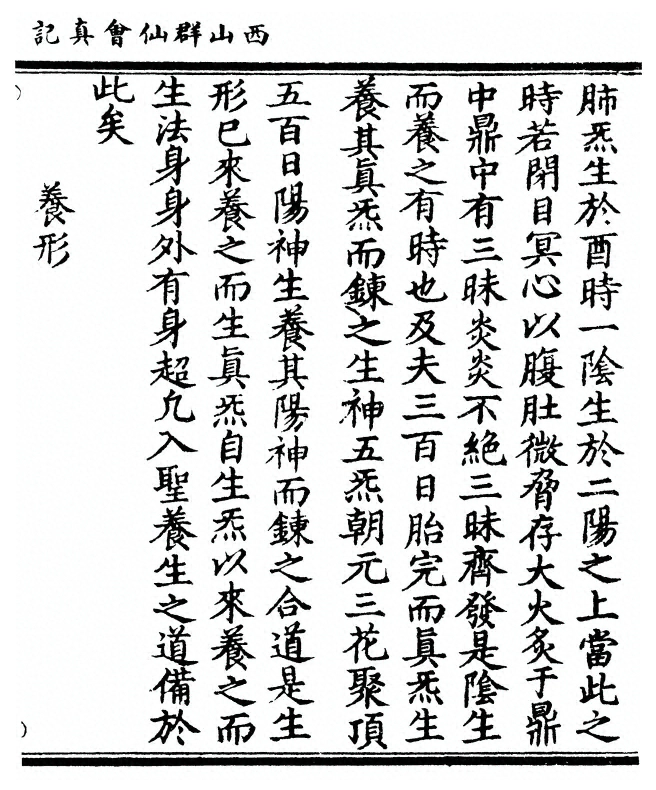 西山群仙會真記
肺炁生於酉時一陰生於二陽之上當此之
時若閉目冥心以腹肚微脅存大火炙于鼎
中鼎中有三昧炎炎不絕三昧齊發是陰生
而養之有時也及夫三百日胎完而眞炁生
養其眞炁而鍊之生神五炁朝元三花聚頂
五百日陽神生養其陽神而鍊之合道是生
形已來養之而生眞炁自生炁以來養之而
生法身身外有身超凡入聖養生之道備於
此矣
養形